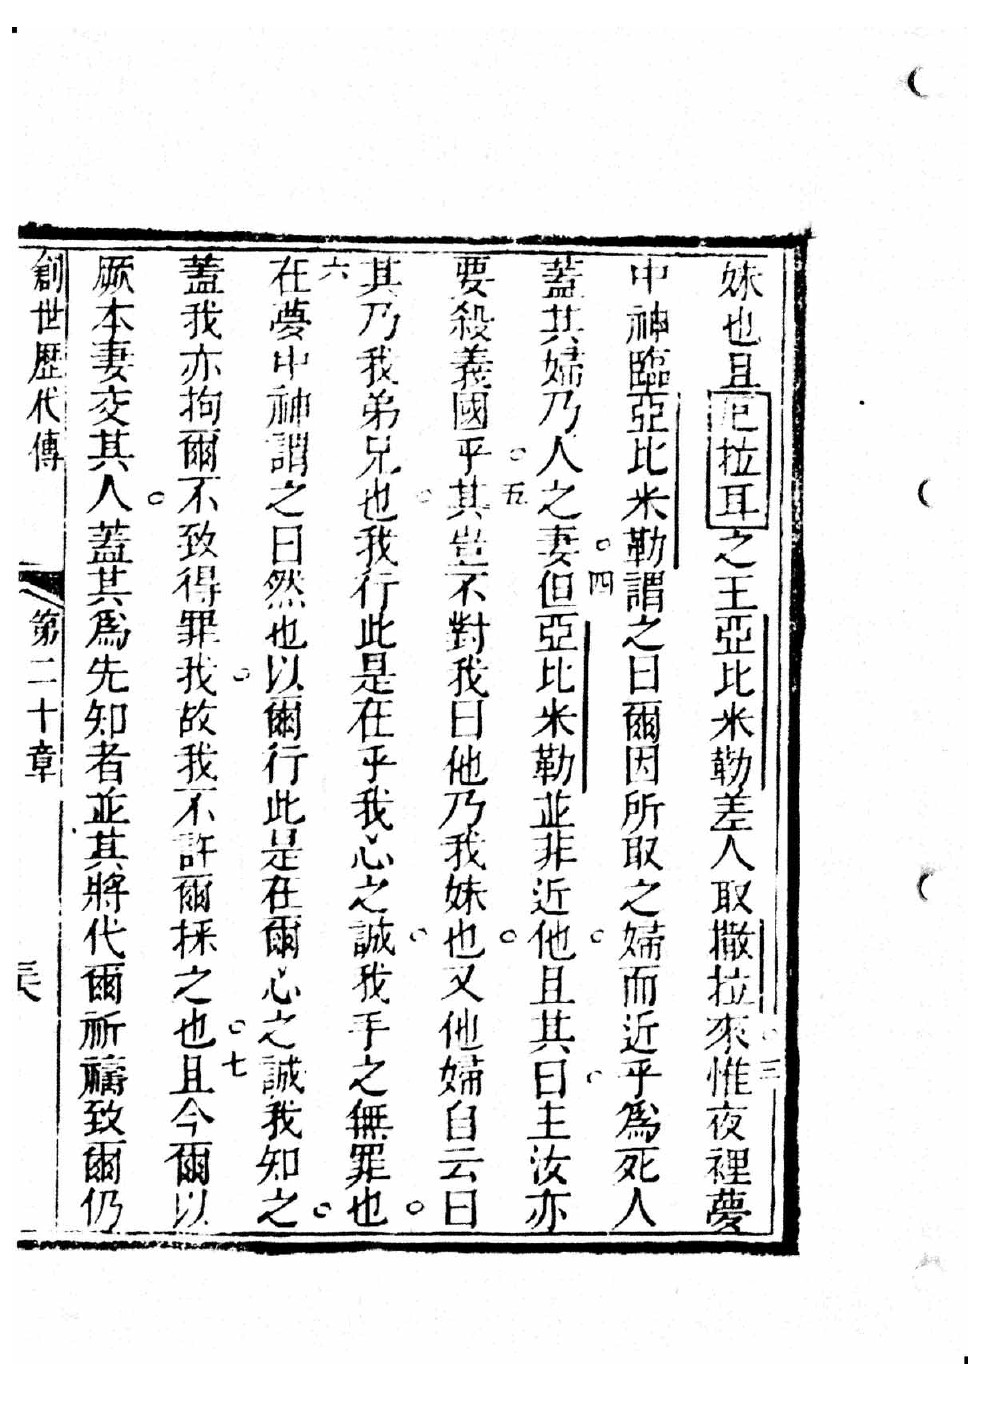 妹也且厄拉耳之王亞比米勒差人取撒拉來。三惟夜裡夢
中神臨亞比米勒謂之曰爾因所取之婦。而近乎爲死人。
蓋其婦乃人之妻。四但亞比米勒並非近他。且其曰主汝亦
要殺義國乎。五其豈不對我曰他乃我妹也。又他婦自云曰
其乃我弟兄也。我行此是在乎我心之誠。我手之無罪也。
六在夢中神謂之曰然也以爾行此是在爾心之誠我知之。
蓋我亦拘爾不致得罪我。故我不許爾採之也。七且今爾以
厥本妻交其人。蓋其爲先知者並其將代爾祈禱致爾仍
創世歷代傳 第二十章